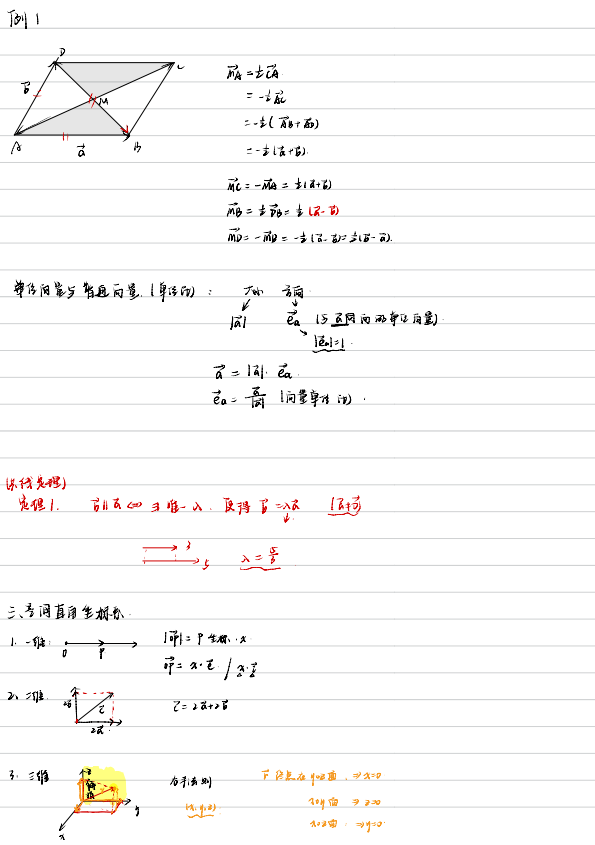 例1
D
C
b⃗
M
A
a⃗
B
M⃗A = ½ C⃗A.
= -½ A⃗C
= -½ ( A⃗B + A⃗D )
= -½ (a⃗ + b⃗).
M⃗C = -M⃗A = ½ (a⃗+b⃗)
M⃗B = ½ D⃗B = ½ (a⃗ - b⃗)
M⃗D = -M⃗B = -½ (a⃗ - b⃗) = ½ (b⃗ - a⃗).
单位向量与普通向量 (单位化) : 大小 方向
|a⃗| e⃗a (与a⃗同向的单位向量)
|e⃗a|=1.
a⃗ = |a⃗|. e⃗a.
e⃗a = a⃗/|a⃗| (向量单位化).
(共线定理)
定理1. b⃗ ∥ a⃗ ⇔ ∃ 唯一 λ. 使得 b⃗ = λa⃗ (a⃗≠0⃗)
3
5 λ = 5/3
三、空间直角坐标系.
1. 一维: O P |O⃗P| = P 坐标. x
O⃗P = x·i⃗ / x·i⃗
2、二维 2b⃗ c⃗ 2a⃗ c⃗ = 2a⃗+2b⃗
3. 三维 z y x 右手法则 下 终点在 yoz面. ⇒ x=0
(x,y,z) xoy面 ⇒ z=0
xoz面. ⇒ y=0